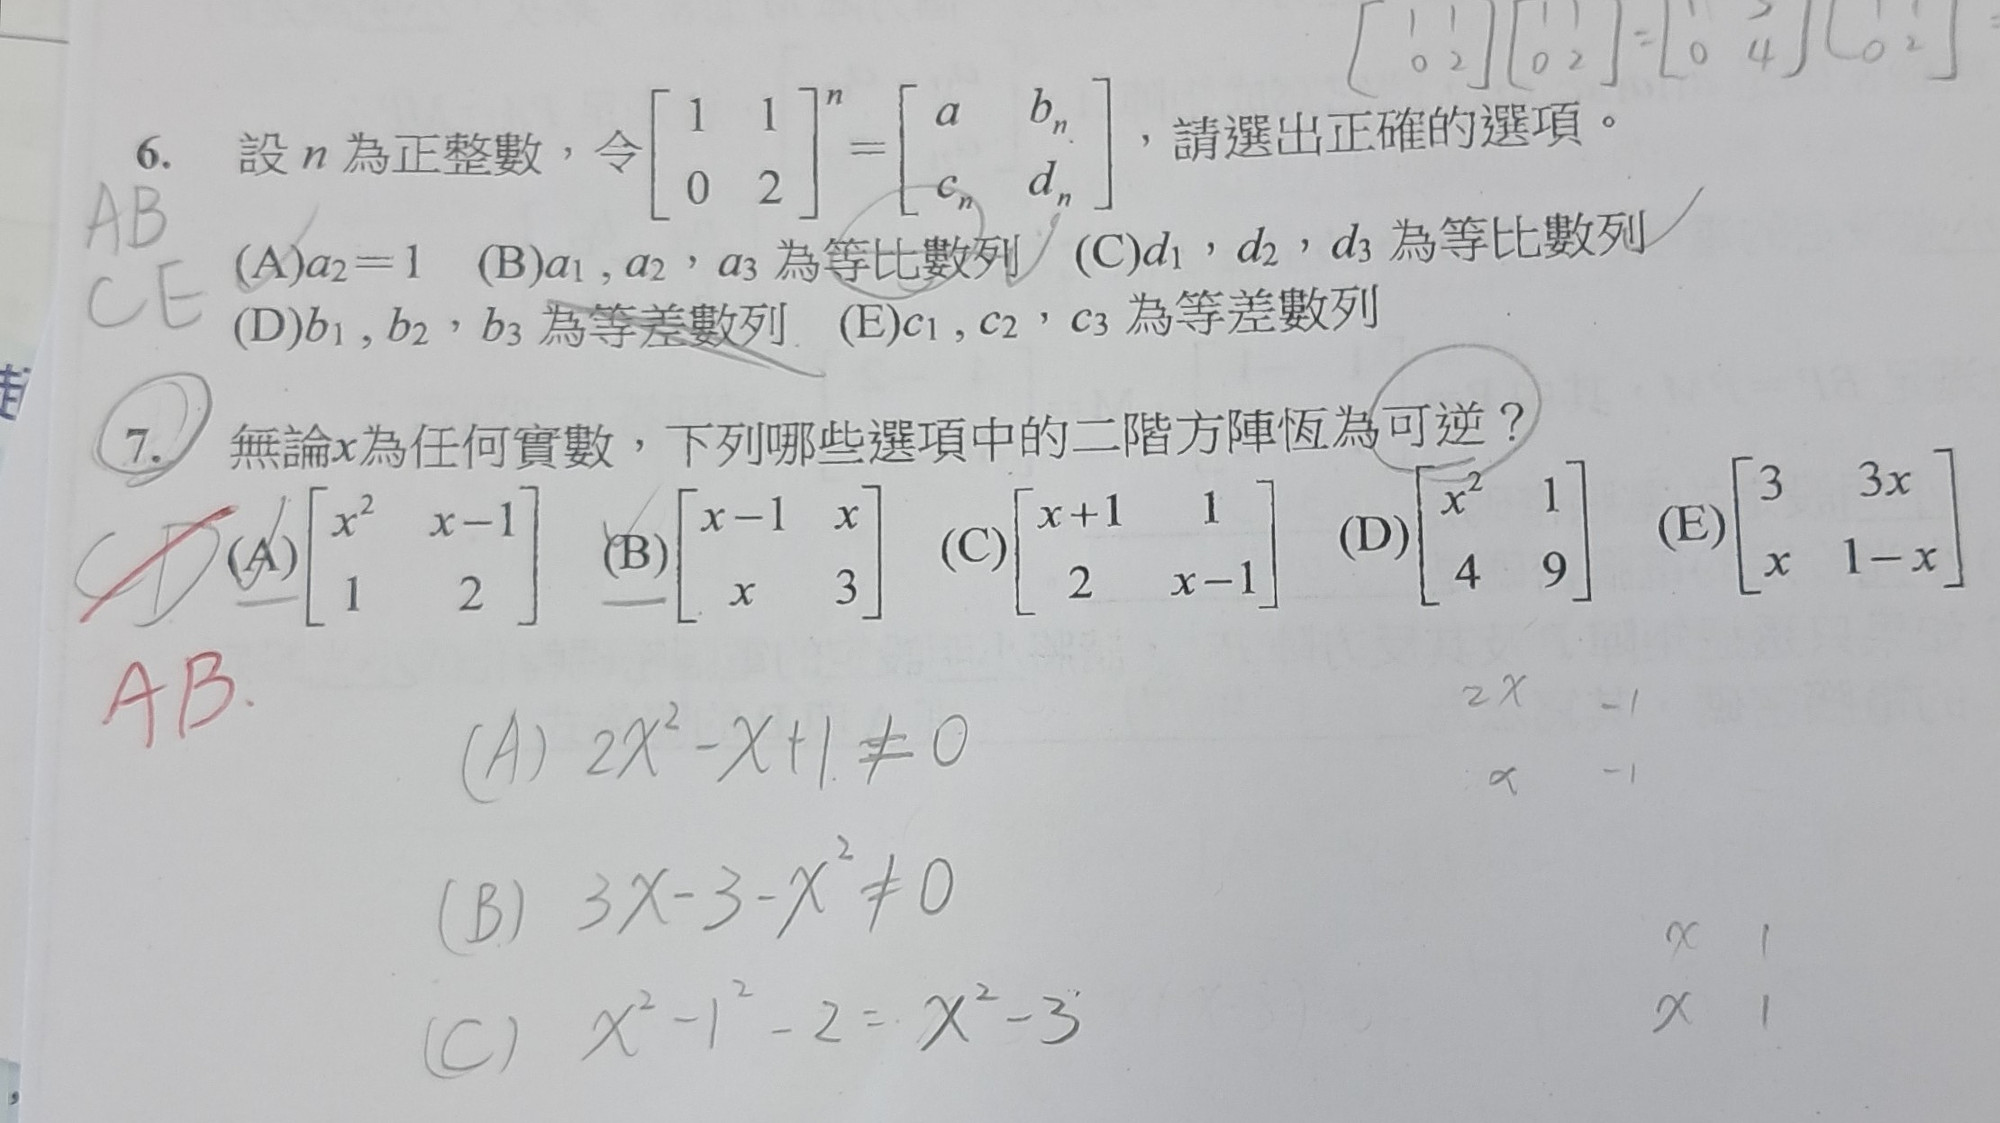 [1 1; 0 2][1 1; 0 2]=[1 3; 0 4][1 1; 0 2]=
6. 設 n 為正整數，令[1 1; 0 2]ⁿ=[a bₙ; cₙ dₙ]，請選出正確的選項。
AB
(A)a₂＝1 (B)a₁ , a₂，a₃ 為等比數列 (C)d₁，d₂，d₃ 為等比數列
CE
(D)b₁ , b₂，b₃ 為等差數列 (E)c₁ , c₂，c₃ 為等差數列
7. 無論x為任何實數，下列哪些選項中的二階方陣恆為可逆？
CD
(A)[x² x−1; 1 2] (B)[x−1 x; x 3] (C)[x+1 1; 2 x−1] (D)[x² 1; 4 9] (E)[3 3x; x 1−x]
AB.
(A) 2x²-x+1≠0
2x -1
x -1
(B) 3x-3-x²≠0
x 1
x 1
(C) x²-1²-2=x²-3